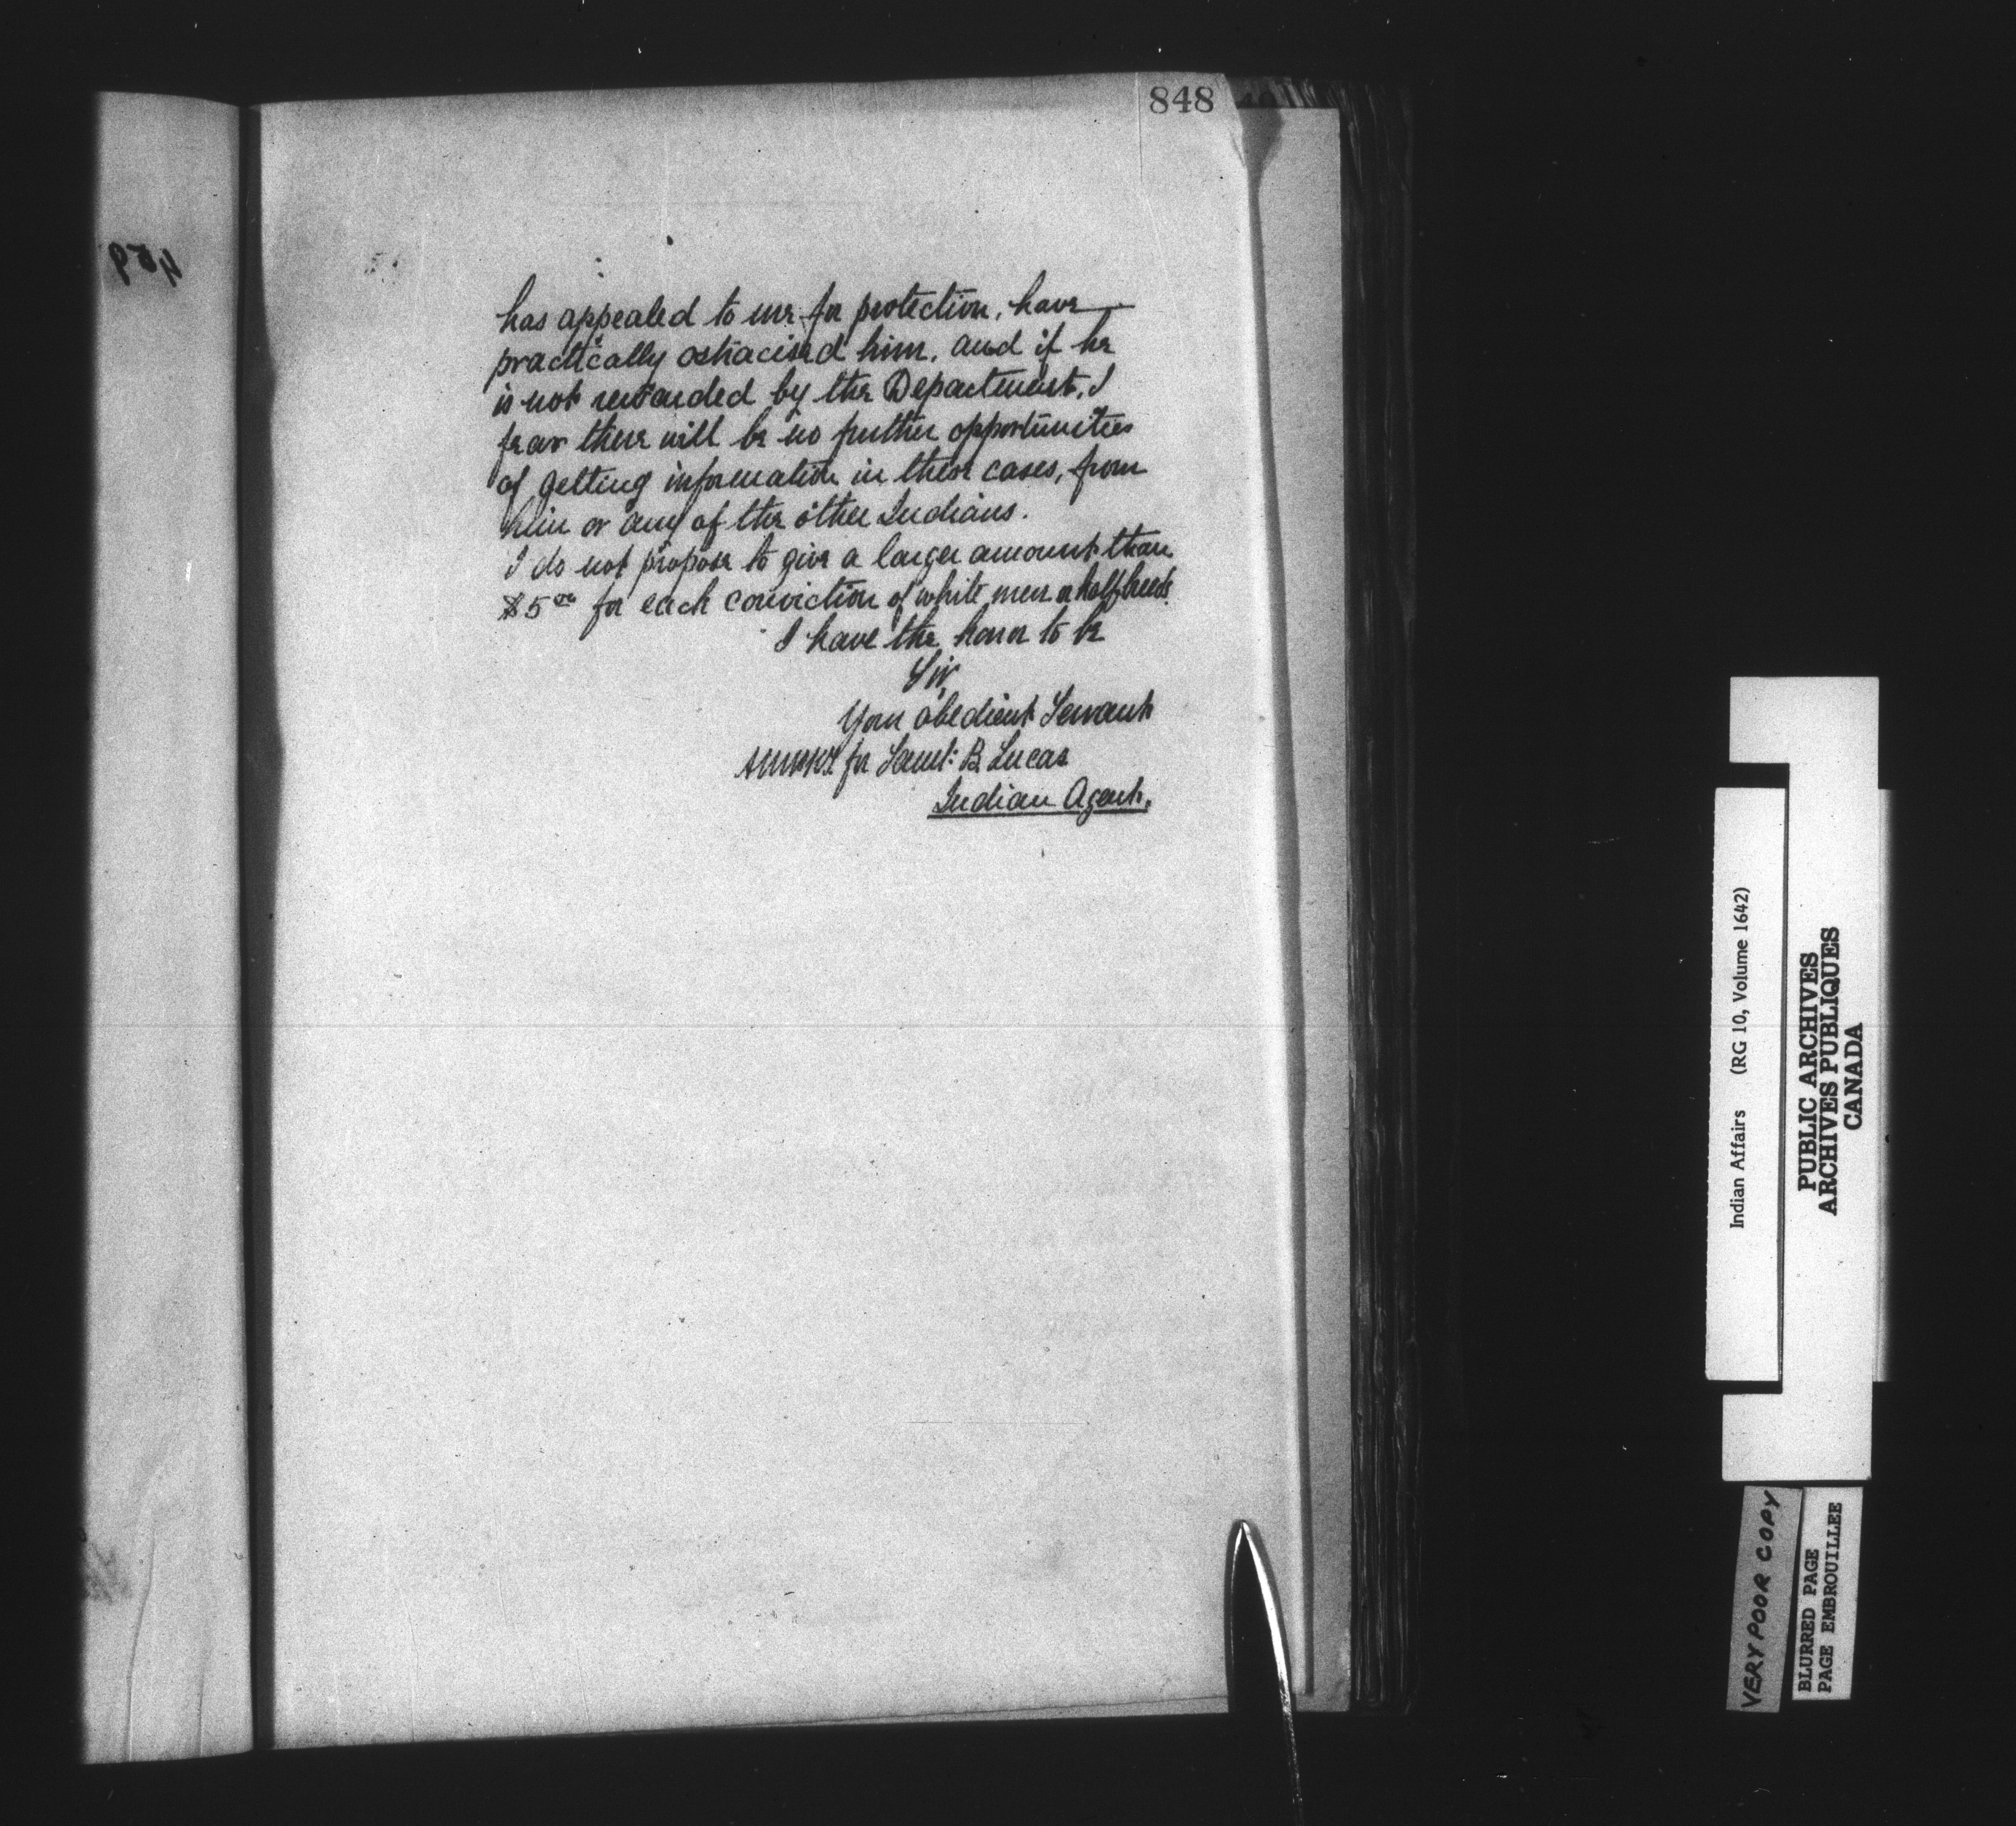 848
459
has appealed to me for protection, have
practically ostracised him, and if he
is not rewarded by the Department, I
fear there will be no further opportunities
of getting information in these cases, from
him or any of the other Indians.
I do not propose to give a larger amount than
$5 00 for each conviction of white men or halfbreeds.
I have the honor to be
Sir,
Your obedient Servant
for Saml: B. Lucas
Indian Agent.
Indian Affairs (RG 10, Volume 1642)
PUBLIC ARCHIVES
ARCHIVES PUBLIQUES
CANADA
VERY POOR COPY
BLURRED PAGE
PAGE EMBROUILLEE